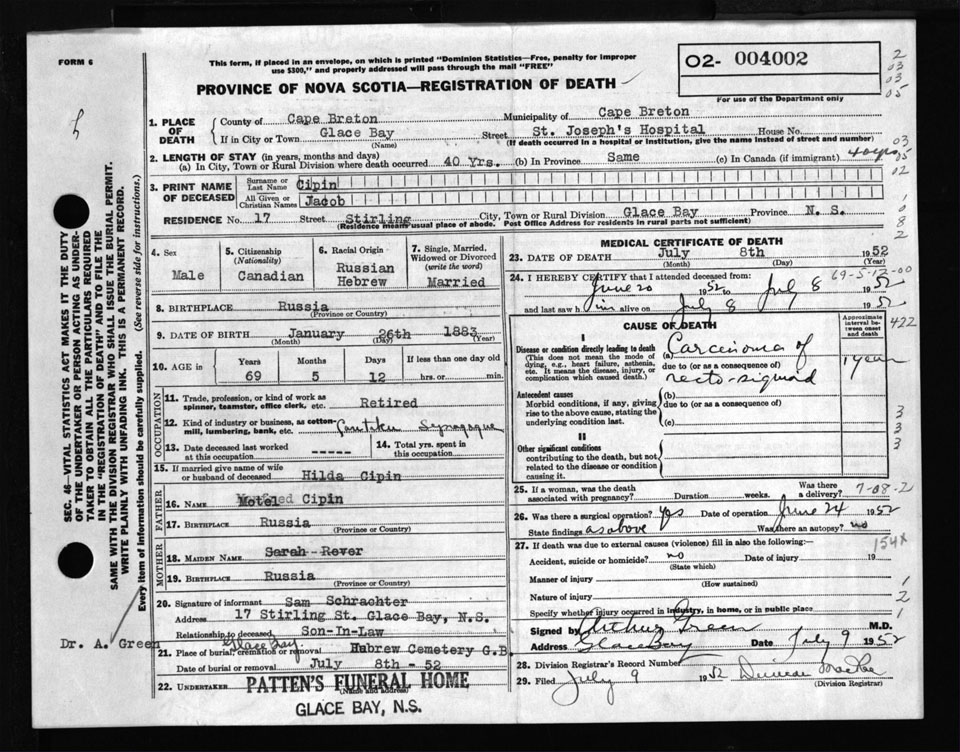 FORM 6
This form, if placed in an envelope, on which is printed "Dominion Statistics—Free, penalty for improper
use $300," and properly addressed will pass through the mail "FREE"
O2- 004002
For use of the Department only
PROVINCE OF NOVA SCOTIA—REGISTRATION OF DEATH
2
03
03
05
03
05
02
1. PLACE OF DEATH
County of Cape Breton Municipality of Cape Breton
If in City or Town Glace Bay Street St. Joseph's Hospital House No.
(Name) (If death occurred in a hospital or institution, give the name instead of street and number)
2. LENGTH OF STAY (in years, months and days)
(a) In City, Town or Rural Division where death occurred 40 Yrs. (b) In Province Same (c) In Canada (if immigrant) 40 yrs
3. PRINT NAME OF DECEASED
Surname or Last Name Cipin
All Given or Christian Names Jacob
RESIDENCE No. 17 Street Stirling City, Town or Rural Division Glace Bay Province N. S.
(Residence means usual place of abode. Post Office Address for residents in rural parts not sufficient)
1
0
8
2
4. Sex
Male
5. Citizenship
(Nationality)
Canadian
6. Racial Origin
Russian
Hebrew
7. Single, Married,
Widowed or Divorced
(write the word)
Married
8. BIRTHPLACE Russia
(Province or Country)
9. DATE OF BIRTH January 26th 1883
(Month) (Day) (Year)
10. AGE in
Years Months Days If less than one day old
69 5 12 hrs. or min.
OCCUPATION
11. Trade, profession, or kind of work as
spinner, teamster, office clerk, etc. Retired
12. Kind of industry or business, as cotton-
mill, lumbering, bank, etc. Synagogue
13. Date deceased last worked
at this occupation -----
14. Total yrs. spent in
this occupation
15. If married give name of wife
or husband of deceased Hilda Cipin
FATHER
16. NAME Motel Cipin
17. BIRTHPLACE Russia
(Province or Country)
MOTHER
18. MAIDEN NAME Sarah Rever
19. BIRTHPLACE Russia
(Province or Country)
20. Signature of informant Sam Schrachter
Address 17 Stirling St. Glace Bay, N.S.
Relationship to deceased Son-In-Law
Glace Bay
21. Place of burial, cremation or removal Habrew Cemetery G.B.
Date of burial or removal July 8th - 52
22. UNDERTAKER PATTEN'S FUNERAL HOME
(Name and address)
GLACE BAY, N.S.
MEDICAL CERTIFICATE OF DEATH
23. DATE OF DEATH July 8th 1952
(Month) (Day) (Year)
24. I HEREBY CERTIFY that I attended deceased from:
69-5-12-00
June 20 1952 to July 8 1952
and last saw him alive on July 8 1952
CAUSE OF DEATH
Approximate
interval be-
tween onset
and death
422
I
Disease or condition directly leading to death
(This does not mean the mode of
dying, e.g., heart failure, asthenia,
etc. It means the disease, injury, or
complication which caused death.)
(a) Carcinoma of 1 year
due to (or as a consequence of)
recto-sigmoid
Antecedent causes
Morbid conditions, if any, giving
rise to the above cause, stating the
underlying condition last.
(b)
due to (or as a consequence of)
(c)
II
Other significant conditions
contributing to the death, but not
related to the disease or condition
causing it.
3
3
3
25. If a woman, was the death
associated with pregnancy? Duration weeks. Was there
a delivery? 7-08-2
26. Was there a surgical operation? Yes Date of operation June 24 1952
State findings as above Was there an autopsy? no
154X
27. If death was due to external causes (violence) fill in also the following:—
Accident, suicide or homicide? no Date of injury 19
(State which)
Manner of injury
(How sustained)
Nature of injury
Specify whether injury occurred in industry, in home, or in public place
1
2
1
Signed by Arthur Green M.D.
Address Glace Bay Date July 9 1952
28. Division Registrar's Record Number
29. Filed July 9 1952 Duncan MacRae
(Division Registrar)
SEC. 46—VITAL STATISTICS ACT MAKES IT THE DUTY
OF THE UNDERTAKER OR PERSON ACTING AS UNDER-
TAKER TO OBTAIN ALL THE PARTICULARS REQUIRED
IN THE "REGISTRATION OF DEATH" AND TO FILE THE
SAME WITH THE DIVISION REGISTRAR WHO SHALL ISSUE THE BURIAL PERMIT.
WRITE PLAINLY WITH UNFADING INK. THIS IS A PERMANENT RECORD.
Every item of information should be carefully supplied. (See reverse side for instructions.)
Dr. A. Green